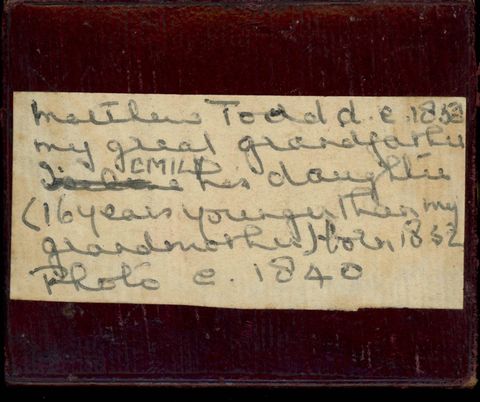 Matthew Todd d. c. 1853
my great grandfather
EMILY
& his daughter
(16 years younger than my
grandmother) born 1832
Photo c. 1840